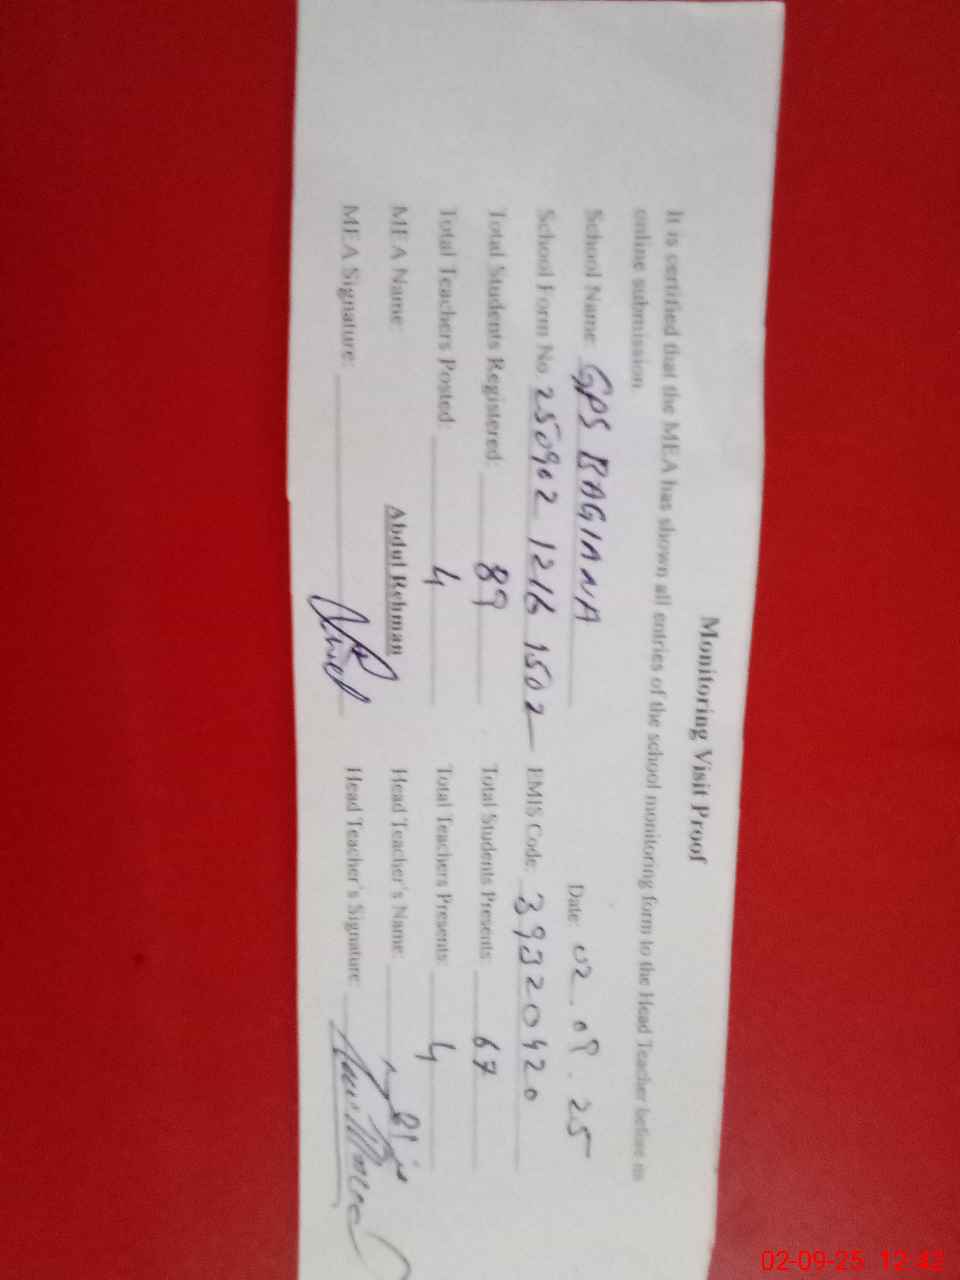 Monitoring Visit Proof
It is certified that the MEA has shown all entries of the school monitoring form to the Head Teacher before its
online submission
School Name: GPS BAGIANA Date: 02.09.25
School Form No 250902 1216 1502 EMIS Code: 39320420
Total Students Registered: 89 Total Students Presents: 67
Total Teachers Posted: 4 Total Teachers Presents: 4
MEA Name: Abdul Rehman Head Teacher's Name:
MEA Signature: Head Teacher's Signature:
02-09-25 12:42